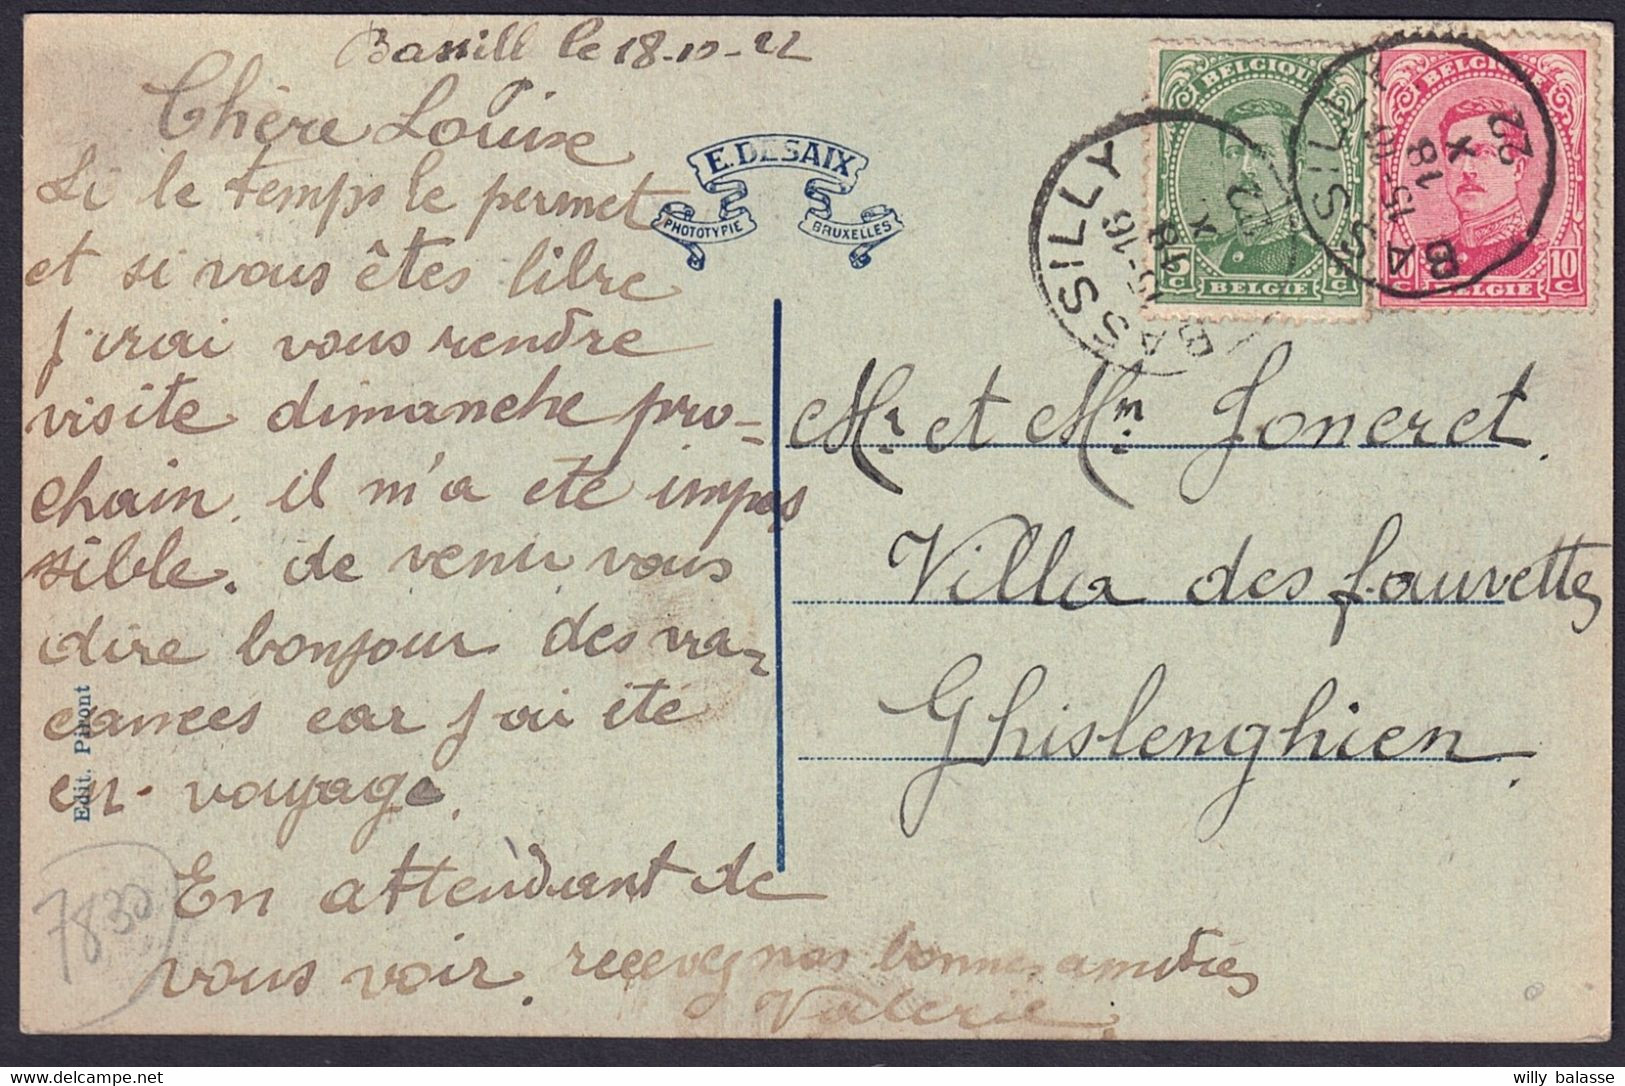 Bassill le 18-10-22
Chère Louise
Si le temps le permet
et si vous êtes libre
j'irai vous rendre
visite dimanche pro-
chain. il m'a été impos
sible. de venir vous
dire bonjour des va-
cances car j'ai été
en voyage.
En attendant de
vous voir. recevez nos bonnes amitiés
Valerie
E. DESAIX
PHOTOTYPIE BRUXELLES
Edit. Piront
7830
BELGIQUE
5 c
BELGIE
BELGIQUE
10 c 10 c
BELGIE
BASSILLY
15-16
18
X
22
BASSILLY
15-16
18
X
22
Mr et Mme Joneret.
Villa des fauvettes
Ghislenghien.
willy balasse